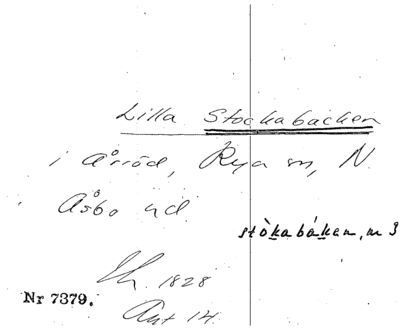 Lilla Stockabacken
i Årröd, Rya sn, N.
Åsbo hd.
stòkabákan, m 3
Lh. 1828
Nr 7379.
Ant 14